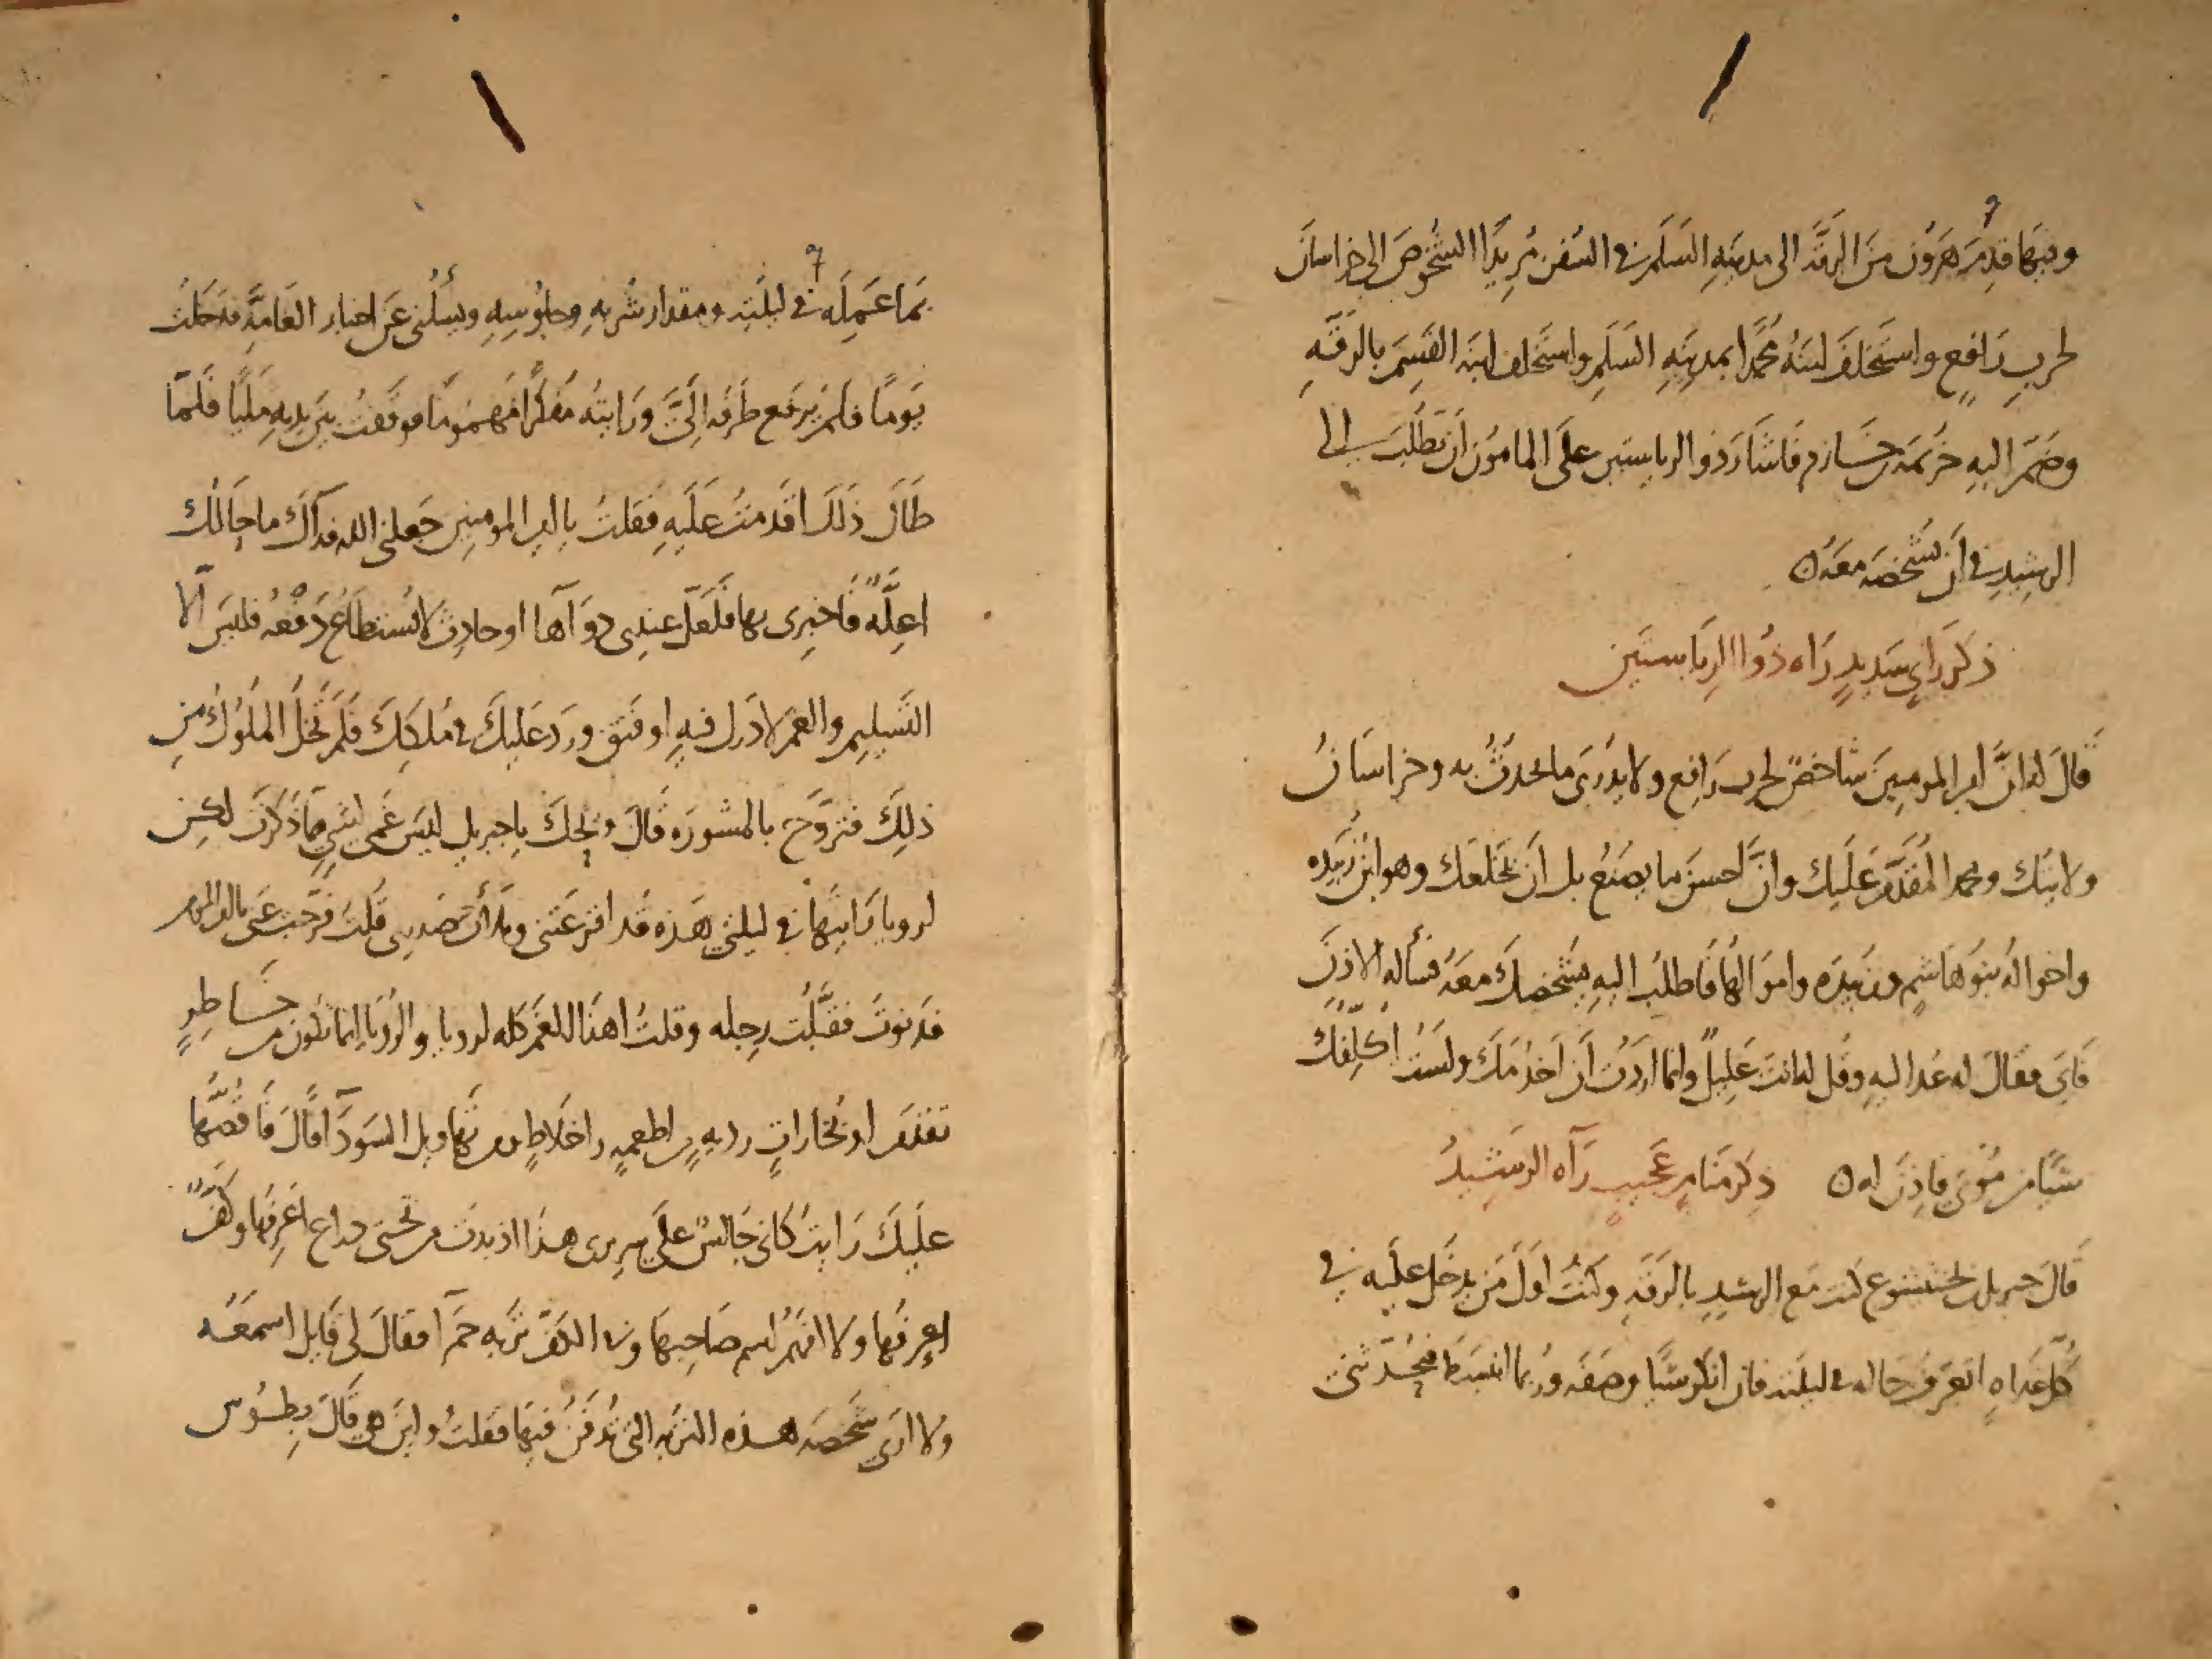 وفيها قدم هرون من الرقة الى مدينه السلم في السفن مريدا الشخوص الى خراسان
لحرب رافع واستخلف ابنه محمدا بمدينه السلم واستخلف ابنه القسم بالرقه
وضم اليه خزيمه بن خازم فاشار ذو الرياستين على المامون ان يطلب الى
الرشيد في ان يشخصه معه
ذكر راي سديد رآه ذوا الرياستين
قال له ان امير المومنين شاخص لحرب رافع ولا يدرى ما يحدث به وخراسان
ولايتك ومحمد المقدم عليك وان احسن ما يصنع بك ان يخلعك وهو ابن زبيده
واخواله بنو هاشم وزبيده واموالها فاطلب اليه يشخصك معه فسأله الاذن
فابى فقال له عد اليه وقل له انت عليل وانما اردت ان اخدمك ولست اكلفك
شيا من مؤنتي فاذن له ذكر منام عجيب رآه الرشيد
قال جبريل بن بختيشوع كنت مع الرشيد بالرقه وكنت اول من يدخل عليه في
كل غداه اتعرف حاله في ليلته فان انكر شيا وصفه وربما انبسط فيحدثني
بما عمله في ليلته ومقدار شربه وجلوسه ويسألني عن اخبار العامة فدخلت
يوما فلم يرفع طرفه الي ورايته مفكرا مهموما فوقفت بين يديه مليا فلما
طال ذلك اقدمت عليه فقلت يا امير المومنين جعلني الله فداك ما حالك
اعلة فاخبرنى بها فلعل عندي دوآها او حادث لا يستطاع دفعه فليس الا
التسليم والغم لا درك فيه او فتق ورد عليك في ملكك فلم تخل الملوك من
ذلك فتروح بالمشوره قال ويحك يا جبريل ليس غمى لشي مما ذكرت لكن
لرويا رايتها في ليلتي هذه قد افزعتنى وملأت صدري قلت فرجت عني يا امير المومنين
فدنوت فقبلت رجله وقلت اهذا الغم كله لرويا والرؤيا انما تكون من خاطر
تقدم او بخارات رديه من اطعمه واخلاط ومن تهاويل السودآ قال فاقصها
عليك رايت كاني جالس على سريرى هذا اذ بدت من تحتى ذراع اعرفها وكف
اعرفها ولا افهم اسم صاحبها وفي الكف تربه حمرآ فقال لي قايل اسمعه
ولا ارى شخصه هذه التربه التي تدفن فيها فقلت واين هي قال بطوس